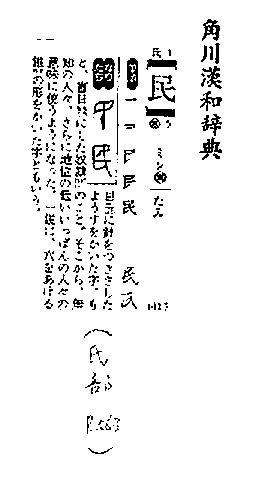 角川漢和辞典
氏 1
民
5
ミン
たみ
民 民
なり
たち
目に針をつきさした
ようすをかいた字。も
と、盲目にした奴隷のこと。そこから、無
知の人々、さらに地位の低いいっぱんの人々の
意味に使うようになった。一説に、穴をあける
錐の形をかいた字ともいう。
(氏部
P.563)